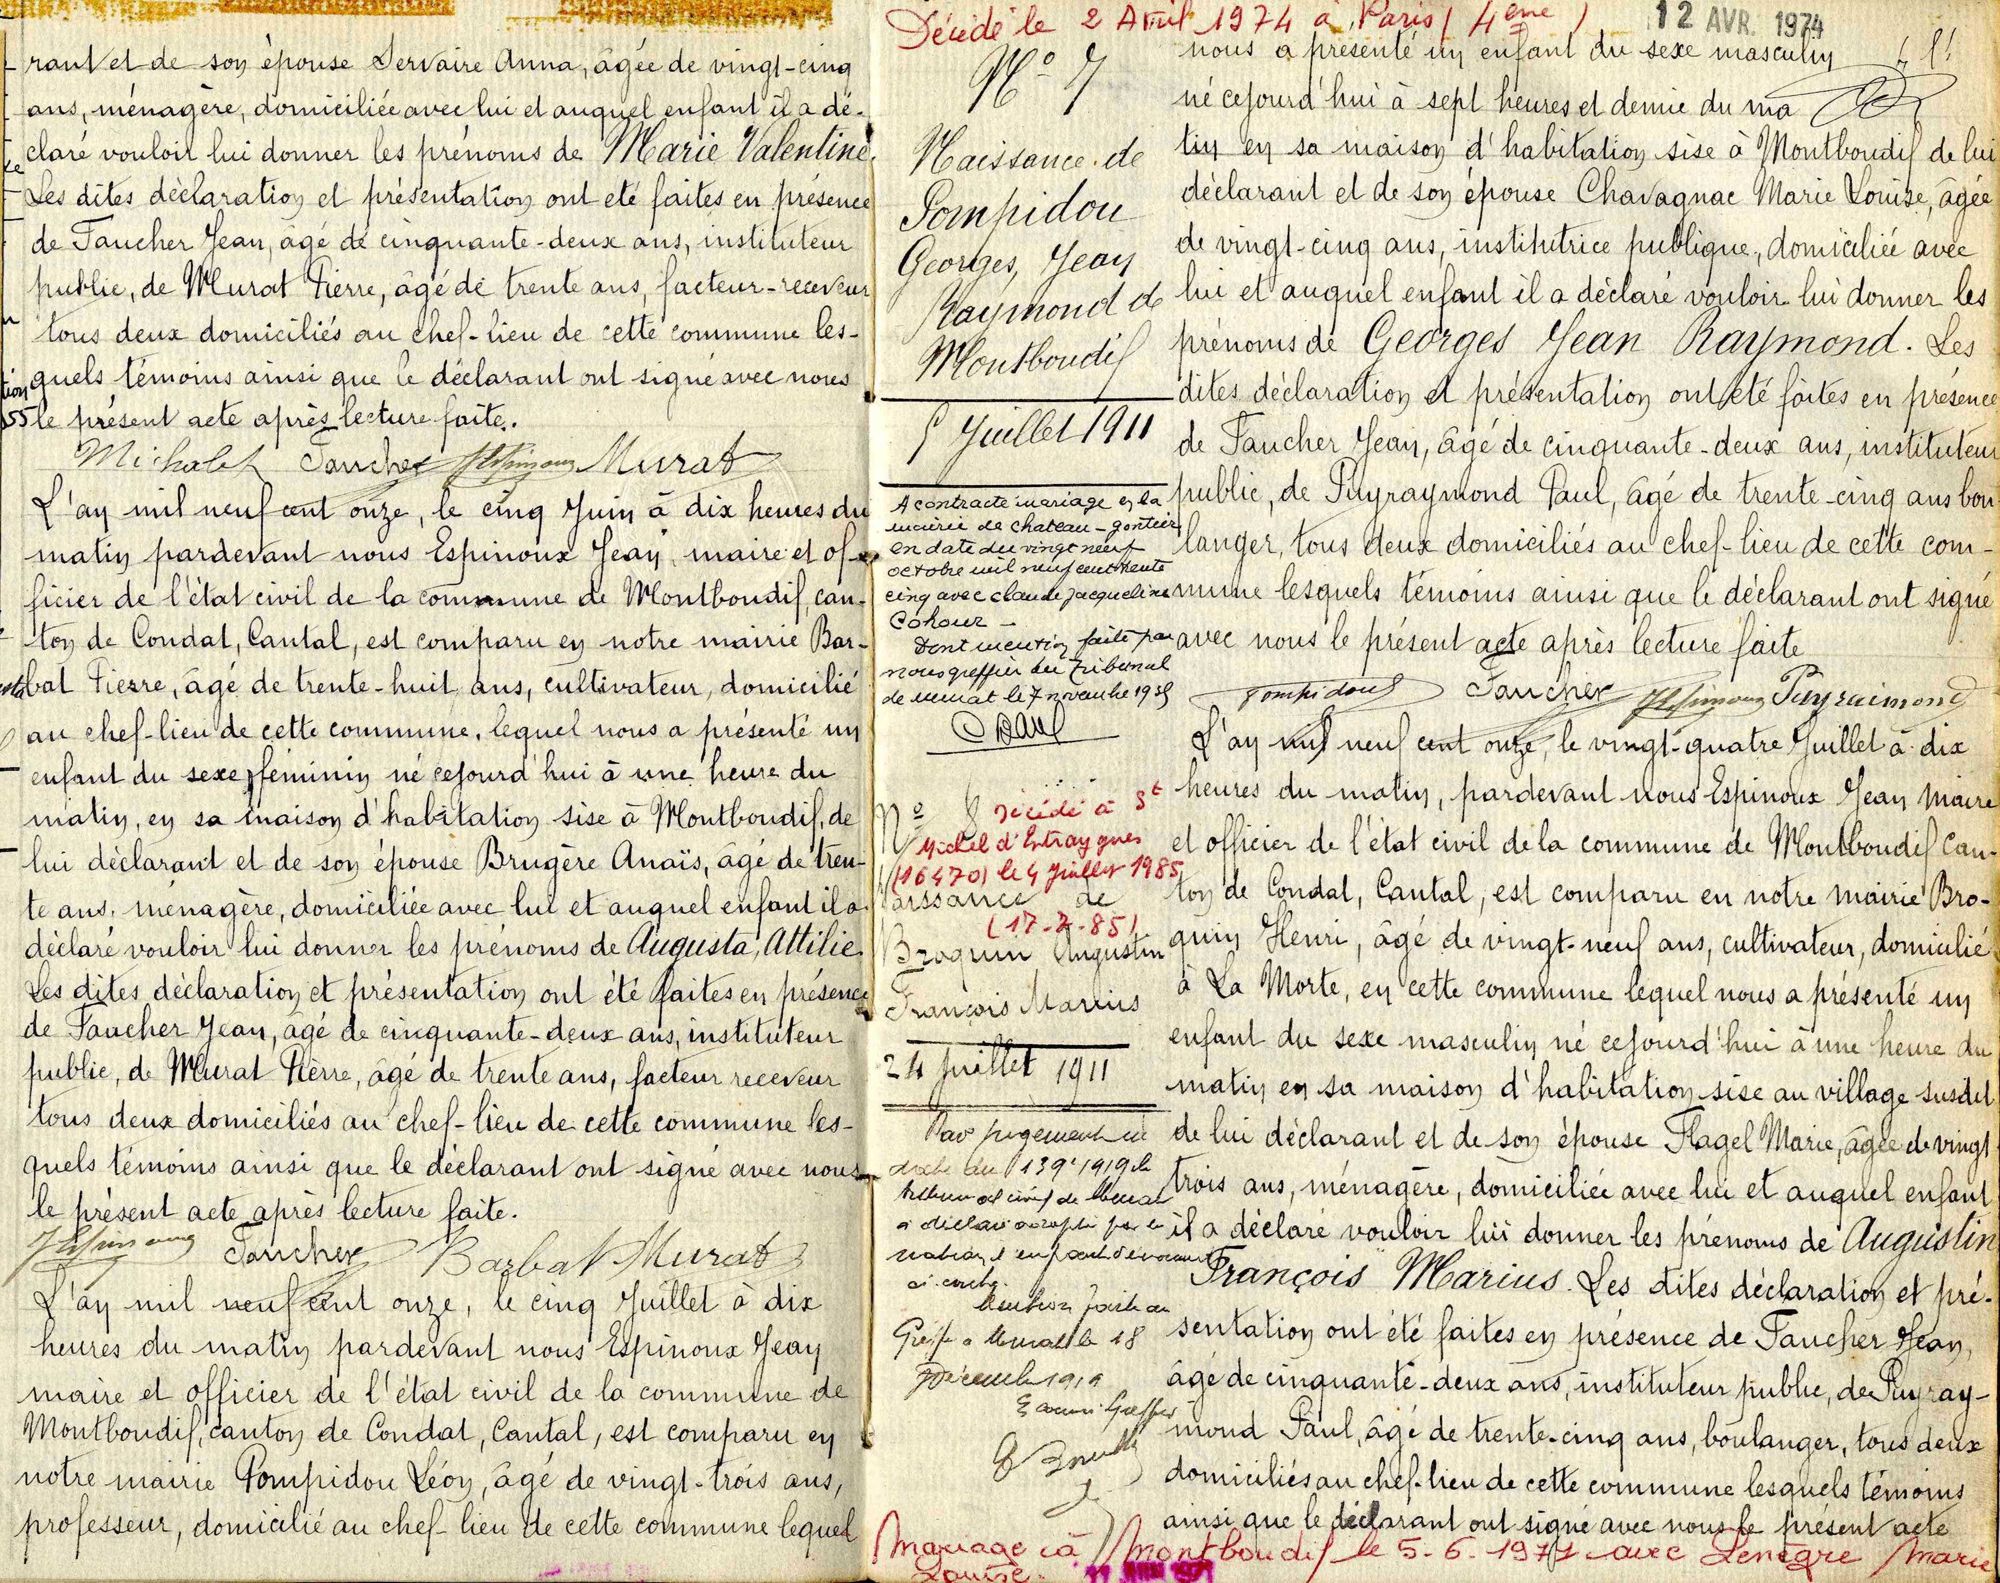 rant et de son épouse Servaire Anna, âgée de vingt-cinq
ans, ménagère, domiciliée avec lui et auquel enfant il a dé-
claré vouloir lui donner les prénoms de Marie Valentine.
Les dites déclaration et présentation ont été faites en présence
de Faucher Jean, âgé de cinquante-deux ans, instituteur
public, de Murat Pierre, âgé de trente ans, facteur-receveur
tous deux domiciliés au chef-lieu de cette commune les-
quels témoins ainsi que le déclarant ont signé avec nous
le présent acte après lecture faite.
Michalet Faucher JEspinoux Murat
L'an mil neuf cent onze, le cinq Juin à dix heures du
matin pardevant nous Espinoux Jean, maire et of-
ficier de l'état civil de la commune de Montboudif, can-
ton de Condat, Cantal, est comparu en notre mairie Bar-
bat Pierre, âgé de trente-huit ans, cultivateur, domicilié
au chef-lieu de cette commune, lequel nous a présenté un
enfant du sexe féminin né cejourd'hui à une heure du
matin, en sa maison d'habitation sise à Montboudif, de
lui déclarant et de son épouse Brugère Anaïs, âgé de tren-
te ans, ménagère, domiciliée avec lui et auquel enfant il a
déclaré vouloir lui donner les prénoms de Augusta, Attilie.
Les dites déclaration et présentation ont été faites en présence
de Faucher Jean, âgé de cinquante-deux ans, instituteur
public, de Murat Pierre, âgé de trente ans, facteur receveur
tous deux domiciliés au chef-lieu de cette commune les-
quels témoins ainsi que le déclarant ont signé avec nous
le présent acte après lecture faite.
JEspinoux Faucher Barbat Murat
L'an mil neuf cent onze, le cinq Juillet à dix
heures du matin pardevant nous Espinoux Jean
maire et officier de l'état civil de la commune de
Montboudif, canton de Condat, Cantal, est comparu en
notre mairie Pompidou Léon, âgé de vingt-trois ans,
professeur, domicilié au chef-lieu de cette commune lequel
Décédé le 2 Avril 1974 à Paris (4eme)
12 AVR. 1974
N° 7
Naissance de
Pompidou
Georges, Jean
Raymond de
Montboudif
5 Juillet 1911
A contracté mariage en la
mairie de chateau-gontier
en date du vingt neuf
octobre mil neuf cent trente
cinq avec claude jacqueline
Cahour -
Dont mention faite par
nous greffier du tribunal
de murat le 7 novembre 1935
N° 8
Décédé à St
Michel d'Entraygues
(16470) le 4 juillet 1985
Naissance de
(17-7-85)
Broquin Augustin
François Marius
24 Juillet 1911
Par jugement en
date du 13 9e 1919 le
tribunal civil de Murat
a déclaré adopté par la
nation l'enfant dénommé
ci-contre.
Mention faite au
Greffe à Murat le 18
Décembre 1919
nous a présenté un enfant du sexe masculin
né cejourd'hui à sept heures et demie du ma
tin en sa maison d'habitation sise à Montboudif de lui
déclarant et de son épouse Chavagnac Marie Louise, âgée
de vingt-cinq ans, institutrice publique, domiciliée avec
lui et auquel enfant il a déclaré vouloir lui donner les
prénoms de Georges Jean Raymond. Les
dites déclaration et présentation ont été faites en présence
de Faucher Jean, âgé de cinquante-deux ans, instituteur
public, de Puyraymond Paul, âgé de trente-cinq ans bou-
langer, tous deux domiciliés au chef-lieu de cette com-
mune lesquels témoins ainsi que le déclarant ont signé
avec nous le présent acte après lecture faite
Pompidou Faucher JEspinoux Puyraimond
L'an mil neuf cent onze, le vingt-quatre Juillet à dix
heures du matin, pardevant nous Espinoux Jean Maire
et officier de l'état civil de la commune de Montboudif Can-
ton de Condat, Cantal, est comparu en notre mairie Bro-
quin Henri, âgé de vingt-neuf ans, cultivateur, domicilié
à La Morte, en cette commune lequel nous a présenté un
enfant du sexe masculin né cejourd'hui à une heure du
matin en sa maison d'habitation sise au village susdit
de lui déclarant et de son épouse Flagel Marie, âgée de vingt
trois ans, ménagère, domiciliée avec lui et auquel enfant
il a déclaré vouloir lui donner les prénoms de Augustin
François Marius. Les dites déclaration et pré-
sentation ont été faites en présence de Faucher Jean,
âgé de cinquante-deux ans, instituteur public, de Puyray-
mond Paul, âgé de trente-cinq ans, boulanger, tous deux
domiciliés au chef-lieu de cette commune lesquels témoins
ainsi que le déclarant ont signé avec nous le présent acte
Mariage à Montboudif le 5-6-1971 avec Lenègre Marie
Louise.